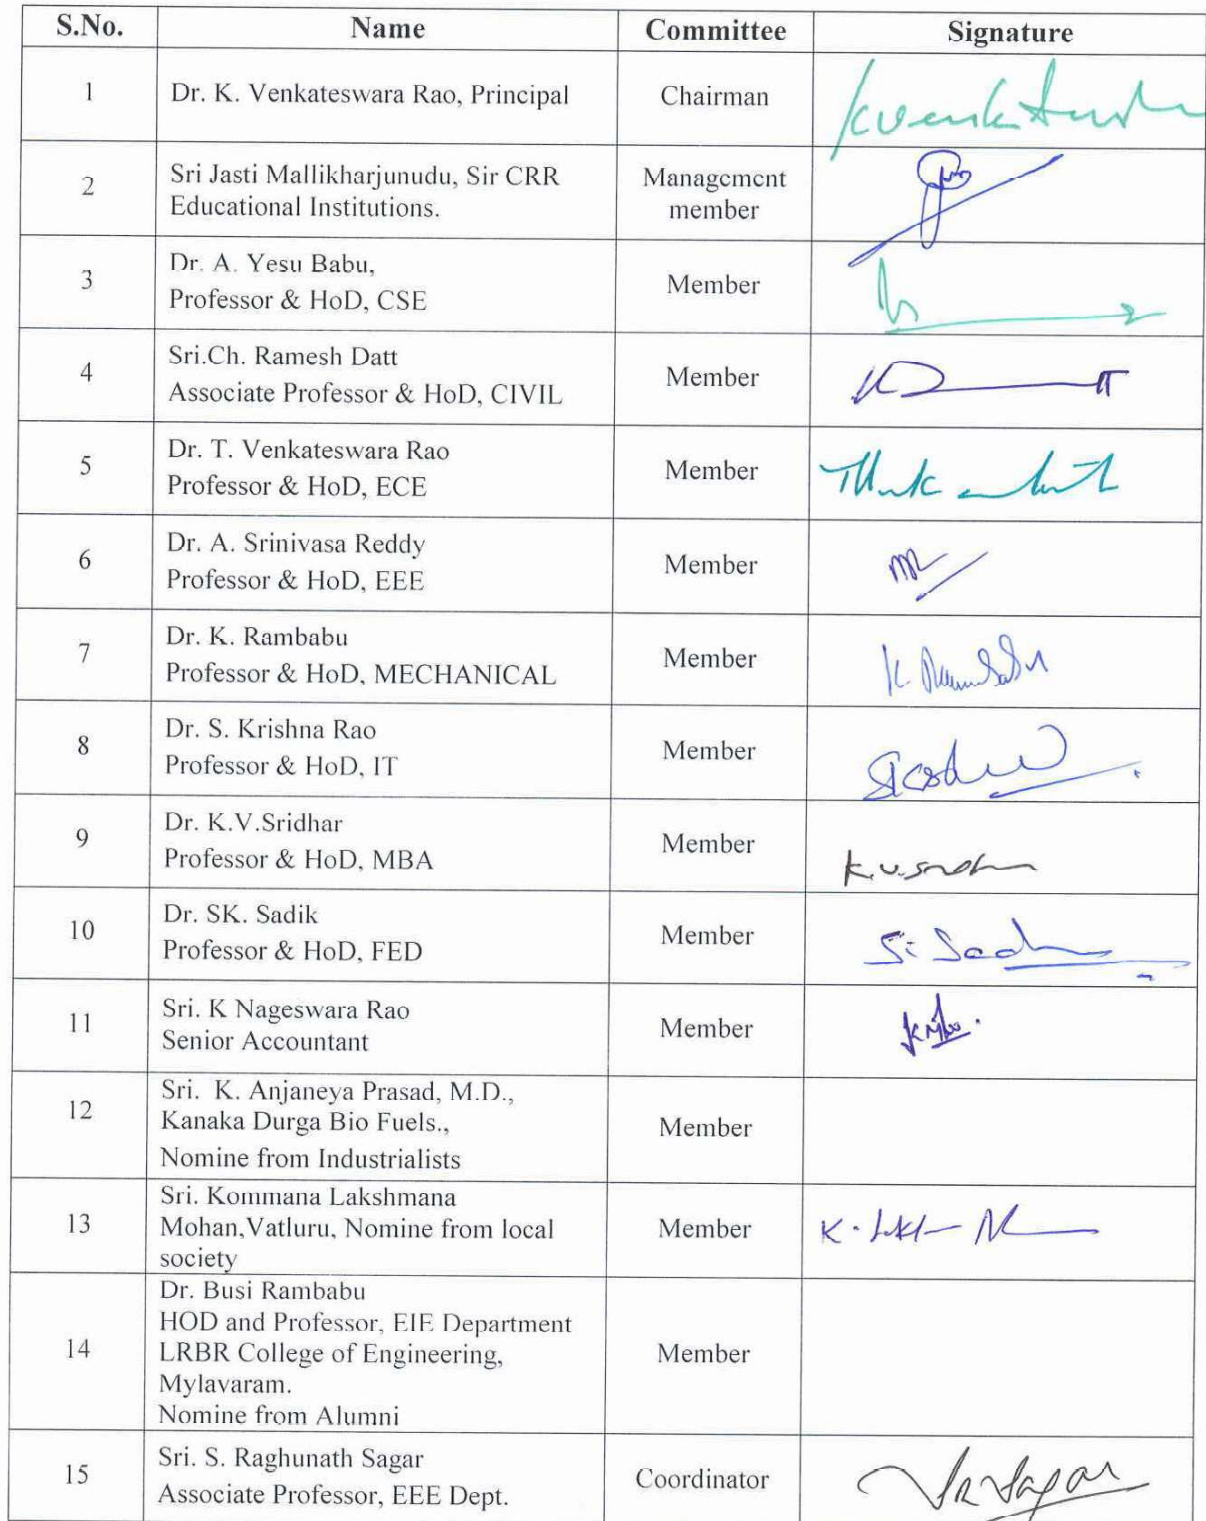 S.No. Name Committee Signature
1 Dr. K. Venkateswara Rao, Principal Chairman
2 Sri Jasti Mallikharjunudu, Sir CRR
Educational Institutions. Management
member
3 Dr. A. Yesu Babu,
Professor & HoD, CSE Member
4 Sri.Ch. Ramesh Datt
Associate Professor & HoD, CIVIL Member
5 Dr. T. Venkateswara Rao
Professor & HoD, ECE Member
6 Dr. A. Srinivasa Reddy
Professor & HoD, EEE Member
7 Dr. K. Rambabu
Professor & HoD, MECHANICAL Member
K. Rambabu
8 Dr. S. Krishna Rao
Professor & HoD, IT Member
9 Dr. K.V.Sridhar
Professor & HoD, MBA Member
K.V.Sridhar
10 Dr. SK. Sadik
Professor & HoD, FED Member
11 Sri. K Nageswara Rao
Senior Accountant Member
12 Sri. K. Anjaneya Prasad, M.D.,
Kanaka Durga Bio Fuels.,
Nomine from Industrialists Member
13 Sri. Kommana Lakshmana
Mohan,Vatluru, Nomine from local
society Member
14 Dr. Busi Rambabu
HOD and Professor, EIE Department
LRBR College of Engineering,
Mylavaram.
Nomine from Alumni Member
15 Sri. S. Raghunath Sagar
Associate Professor, EEE Dept. Coordinator
SR Sagar